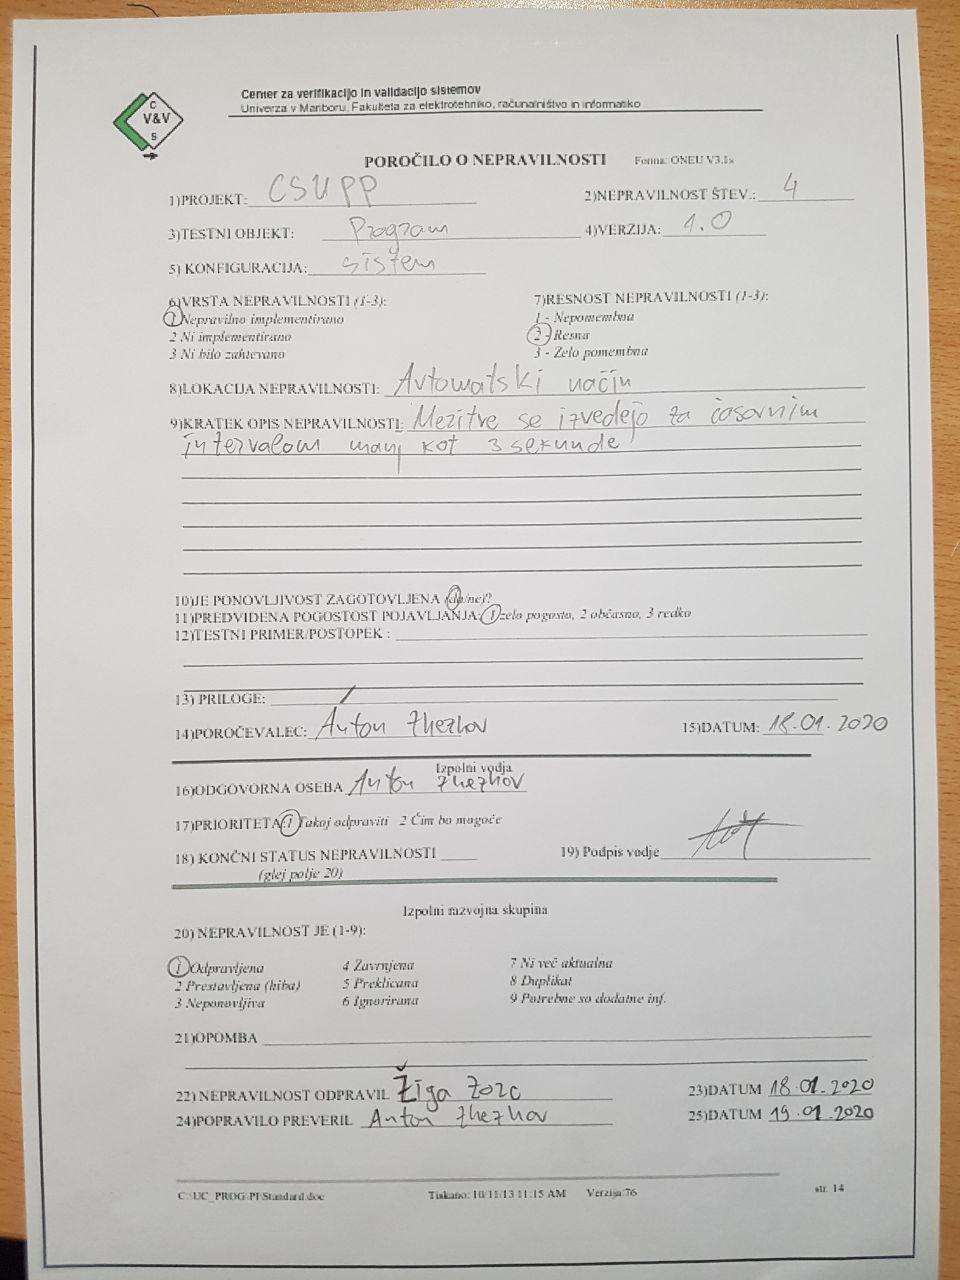 Center za verifikacijo in validacijo sistemov
Univerza v Mariboru, Fakulteta za elektrotehniko, računalništvo in informatiko
C
V&V
S
POROČILO O NEPRAVILNOSTI Forma: ONEU V3.1x
1)PROJEKT: CSUPP 2)NEPRAVILNOST ŠTEV.: 4
3)TESTNI OBJEKT: Program 4)VERZIJA: 1.0
5) KONFIGURACIJA: sistem
6)VRSTA NEPRAVILNOSTI (1-3): 7)RESNOST NEPRAVILNOSTI (1-3):
1 Nepravilno implementirano 1 - Nepomembna
2 Ni implementirano 2 - Resna
3 Ni bilo zahtevano 3 - Zelo pomembna
8)LOKACIJA NEPRAVILNOSTI: Avtomatski način
9)KRATEK OPIS NEPRAVILNOSTI: Mezitve se izvedejo za časovnim
intervalom manj kot 3 sekunde
10)JE PONOVLJIVOST ZAGOTOVLJENA (da/ne)?
11)PREDVIDENA POGOSTOST POJAVLJANJA: 1 zelo pogosto, 2 občasno, 3 redko
12)TESTNI PRIMER/POSTOPEK :
13) PRILOGE: /
14)POROČEVALEC: Anton Zhezhov 15)DATUM: 18.01.2020
Izpolni vodja
16)ODGOVORNA OSEBA Anton Zhezhov
17)PRIORITETA: 1 Takoj odpraviti 2 Čim bo mogoče
18) KONČNI STATUS NEPRAVILNOSTI 19) Podpis vodje
(glej polje 20)
Izpolni razvojna skupina
20) NEPRAVILNOST JE (1-9):
1 Odpravljena 4 Zavrnjena 7 Ni več aktualna
2 Prestavljena (hiba) 5 Preklicana 8 Duplikat
3 Neponovljiva 6 Ignorirana 9 Potrebne so dodatne inf.
21)OPOMBA
22) NEPRAVILNOST ODPRAVIL Žiga Zorc 23)DATUM 18.01.2020
24)POPRAVILO PREVERIL Anton Zhezhov 25)DATUM 19.01.2020
C:\UC_PROG\PI\Standard.doc Tiskano: 10/11/13 11:15 AM Verzija:76 str. 14